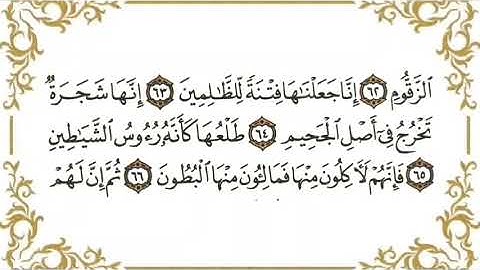 الزَّقُّومِ ٦٢ إِنَّا جَعَلْنَاهَا فِتْنَةً لِّلظَّالِمِينَ ٦٣ إِنَّهَا شَجَرَةٌ
تَخْرُجُ فِي أَصْلِ الْجَحِيمِ ٦٤ طَلْعُهَا كَأَنَّهُ رُءُوسُ الشَّيَاطِينِ
٦٥ فَإِنَّهُمْ لَآكِلُونَ مِنْهَا فَمَالِئُونَ مِنْهَا الْبُطُونَ ٦٦ ثُمَّ إِنَّ لَهُمْ